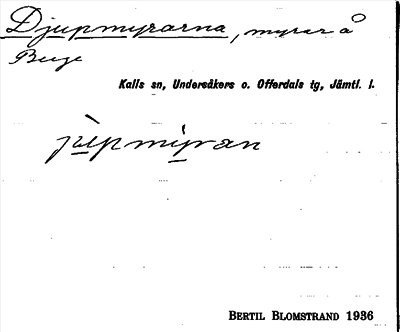 Djupmyrarna, myrar å
Berge
Kalls sn, Undersåkers o. Offerdals tg, Jämtl. l.
jùpmyran
BERTIL BLOMSTRAND 1936